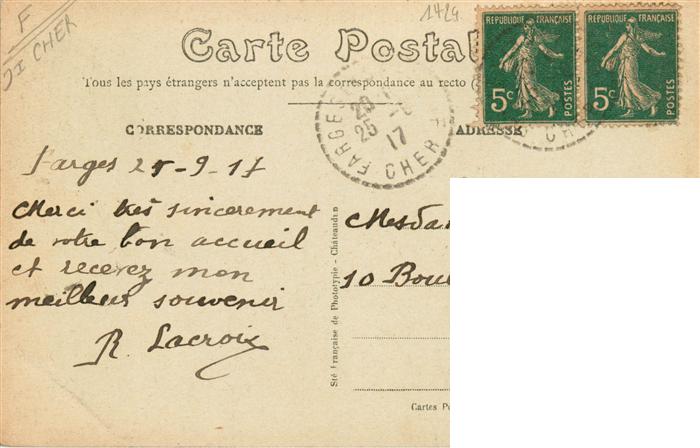 F
1424
CHER
Carte Postal
Tous les pays étrangers n'acceptent pas la correspondance au recto (
RÉPUBLIQUE FRANÇAISE
5c
POSTES
RÉPUBLIQUE FRANÇAISE
5c
POSTES
FARGES
20
25 - 9
17
CHER
CORRESPONDANCE
ADRESSE
Farges 25-9-17
Merci très sincerement
de votre bon accueil
et recevez mon
meilleur souvenir
R. Lacroix
Mesda
10 Boul
Sté Française de Phototypie - Châteaudun
Cartes P